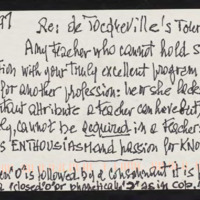 97 Re: de Tocqueville's Tour
Any teacher who cannot hold s
tion with your truly excellent program
for another profession: he or she lacks
tant attribute a teacher can have but
ly, cannot be acquired in a teachers
is ENTHUSIASM and passion for KNO
en "o" is followed by a consonant it is p
a "closed" o or phonetically "ɔ" as in cop,